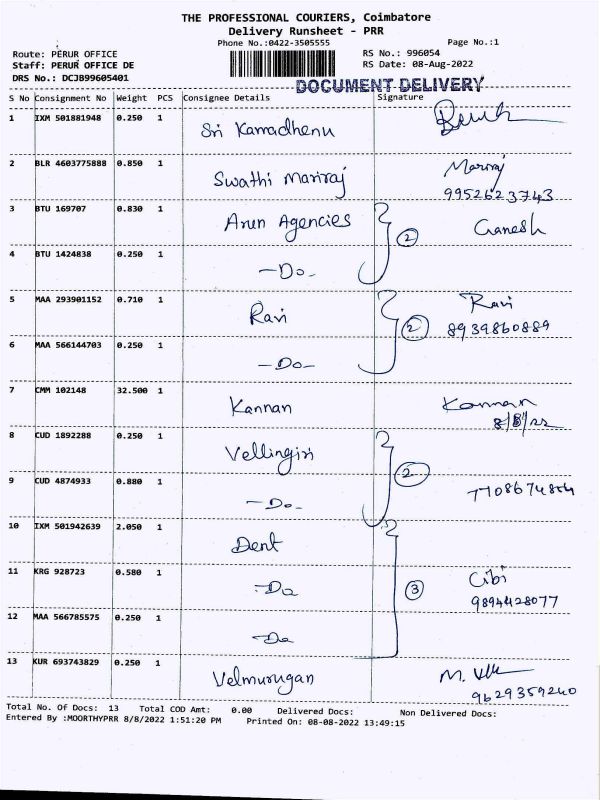 THE PROFESSIONAL COURIERS, Coimbatore
Delivery Runsheet - PRR
Phone No.:0422-3505555 Page No.:1
Route: PERUR OFFICE RS No.: 996054
Staff: PERUR OFFICE DE RS Date: 08-Aug-2022
DRS No.: DCJB99605401
DOCUMENT DELIVERY
S No Consignment No Weight PCS Consignee Details Signature
1 IXM 501881948 0.250 1 Sri Kamadhenu
2 BLR 4603775888 0.850 1 Swathi Mariraj Mariraj
9952623743
3 BTU 169707 0.830 1 Arun Agencies 2 Ganesh
4 BTU 1424838 0.250 1 -Do-
5 MAA 293901152 0.710 1 Ravi 2 Ravi
8939860889
6 MAA 566144703 0.250 1 -Do-
7 CMM 102148 32.500 1 Kannan Kannan
8/8/22
8 CUD 1892288 0.250 1 Vellingiri 2
9 CUD 4874933 0.880 1 -Do-
10 IXM 501942639 2.050 1 Dent
11 KRG 928723 0.580 1 -Do 3 Cibi
9894428077
12 MAA 566785575 0.250 1 -Do
13 KUR 693743829 0.250 1 Velmurugan
9629359240
Total No. Of Docs: 13 Total COD Amt: 0.00 Delivered Docs: Non Delivered Docs:
Entered By :MOORTHYPRR 8/8/2022 1:51:20 PM Printed On: 08-08-2022 13:49:15